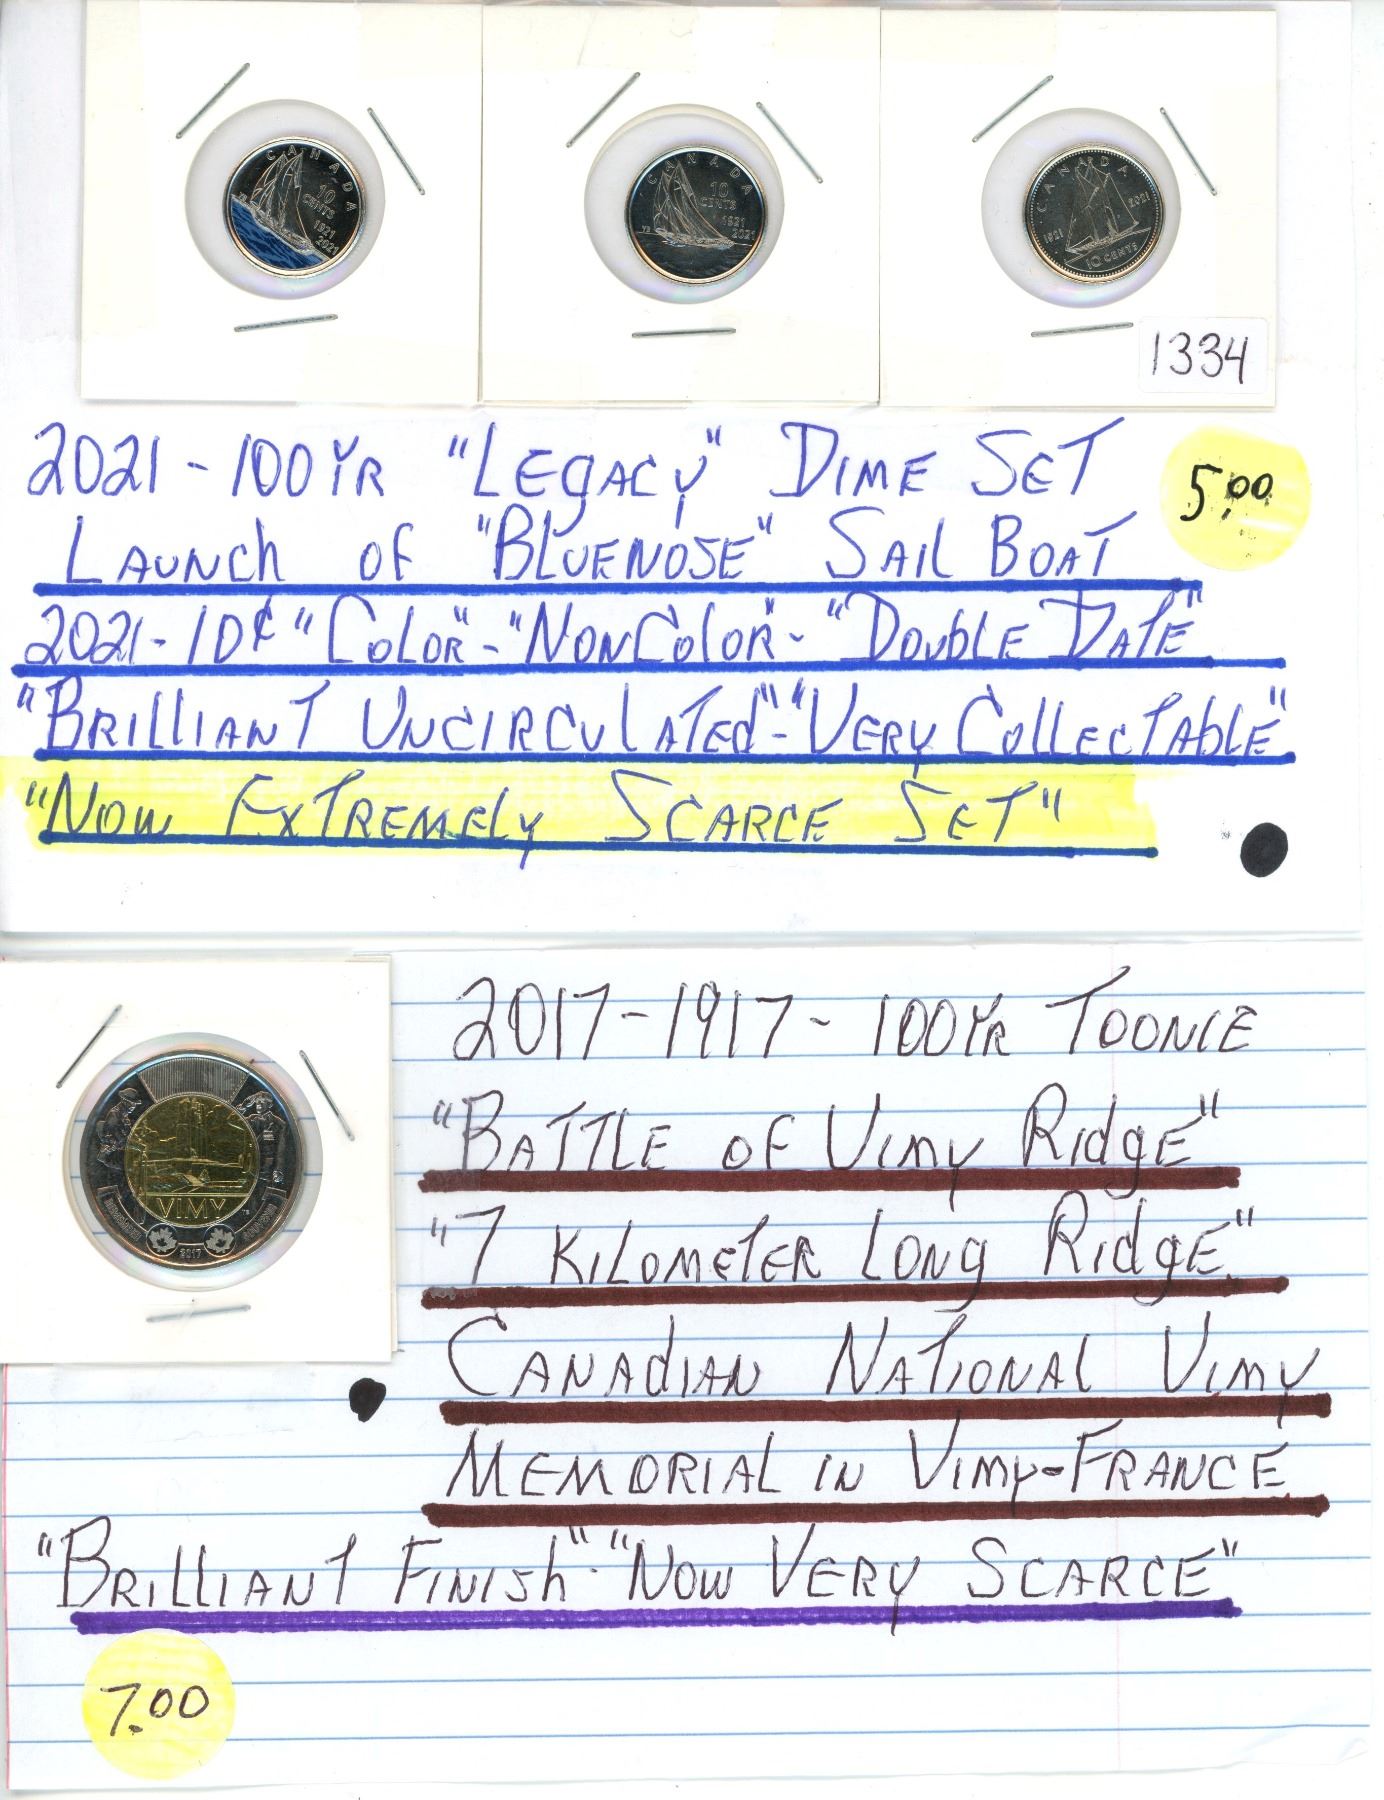 CANADA
10
CENTS
1921
2021
CANADA
10
CENTS
1921
2021
CANADA
1921
2021
10 CENTS
1334
2021-100YR "LEGACY" DIME SET
5.00
LAUNCH OF "BLUENOSE" SAIL BOAT
2021-10¢ "COLOR"-"NONCOLOR"-"DOUBLE DATE"
"BRILLIANT UNCIRCULATED"-"VERY COLLECTABLE"
"NOW EXTREMELY SCARCE SET"
2017-1917-100YR TOONIE
"BATTLE OF VIMY RIDGE"
"7 KILOMETER LONG RIDGE"
VIMY
2017
CANADIAN NATIONAL VIMY
MEMORIAL IN VIMY-FRANCE
"BRILLIANT FINISH"-"NOW VERY SCARCE"
7.00